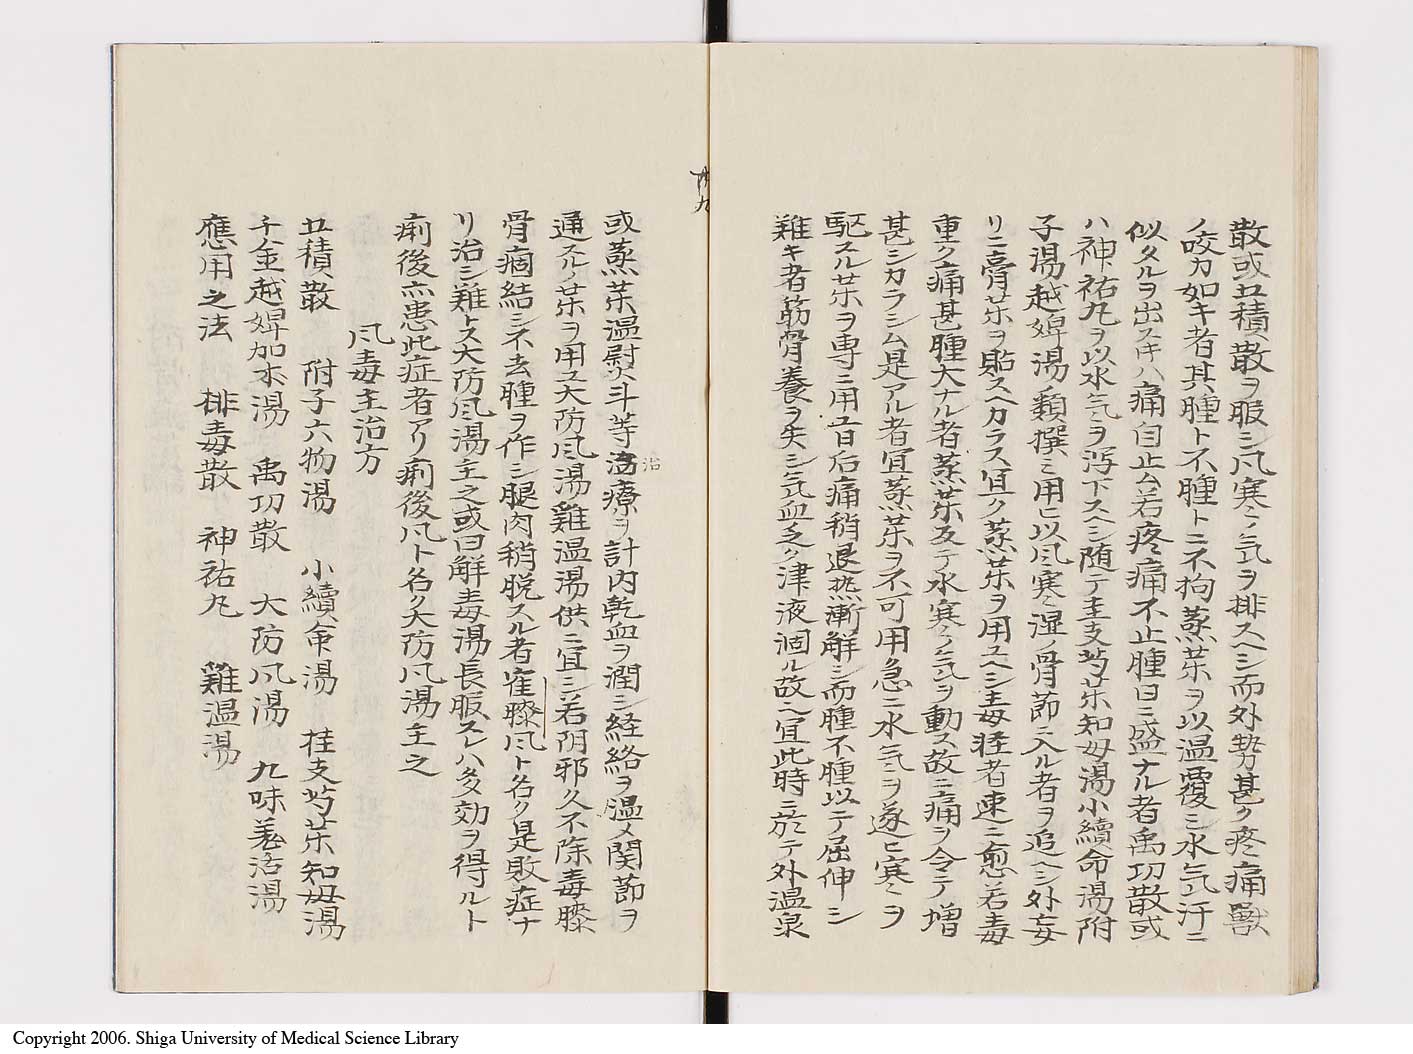 散或五積散ヲ服シ風寒ノ氣ヲ排スヘシ而外勢甚ク疼痛獣
ノ咬カ如キ者其腫ト不腫トニ不拘蒸茱ヲ以温覆シ水氣汗ニ
似タルヲ出スキハ痛自止ム若疼痛不止腫日ニ盛ナル者禹功散或
ハ神祐丸ヲ以水氣ヲ瀉下スヘシ随テ桂支芍茱知母湯小續命湯附
子湯越婢湯類撰ミ用ヒ以風寒湿ノ骨節ニ入ル者ヲ追ヘシ外妄
リニ膏茱ヲ貼スヘカラス宜ク蒸茱ヲ用ユヘシ毒軽者速ニ愈若毒
重ク痛甚腫大ナル者蒸茱反テ水寒ノ氣ヲ動ス故ニ痛ヲ令テ増
甚シカラシム是アル者宜蒸茱ヲ不可用急ニ水氣ヲ遂ヒ寒ヲ
駆スル茱ヲ専ニ用ユ日后痛稍退熱漸解シ而腫不腫以テ屈伸シ
難キ者筋骨養ヲ失シ氣血乏ク津液涸ル故ニ宜此時ニ於テ外温泉
或蒸茱温熨斗等治療ヲ計内乾血ヲ潤シ経絡ヲ温メ関節ヲ
通スルノ茱ヲ用ユ大防風湯雞温湯供ニ宜シ若阴邪久不除毒膝
骨痼結シ不去腫ヲ作シ腿肉稍脱スル者寉膝風ト名ク是敗症ナ
リ治シ難トス大防風湯主之或曰解毒湯長服スレハ多効ヲ得ルト
痢後亦患此症者アリ痢後風ト名ク大防風湯主之
風毒主治方
五積散 附子六物湯 小續命湯 桂支芍茱知母湯
千金越婢加朮湯 禹功散 大防風湯 九味羌活湯
應用之法 排毒散 神祐丸 雞温湯
治
Copyright 2006. Shiga University of Medical Science Library